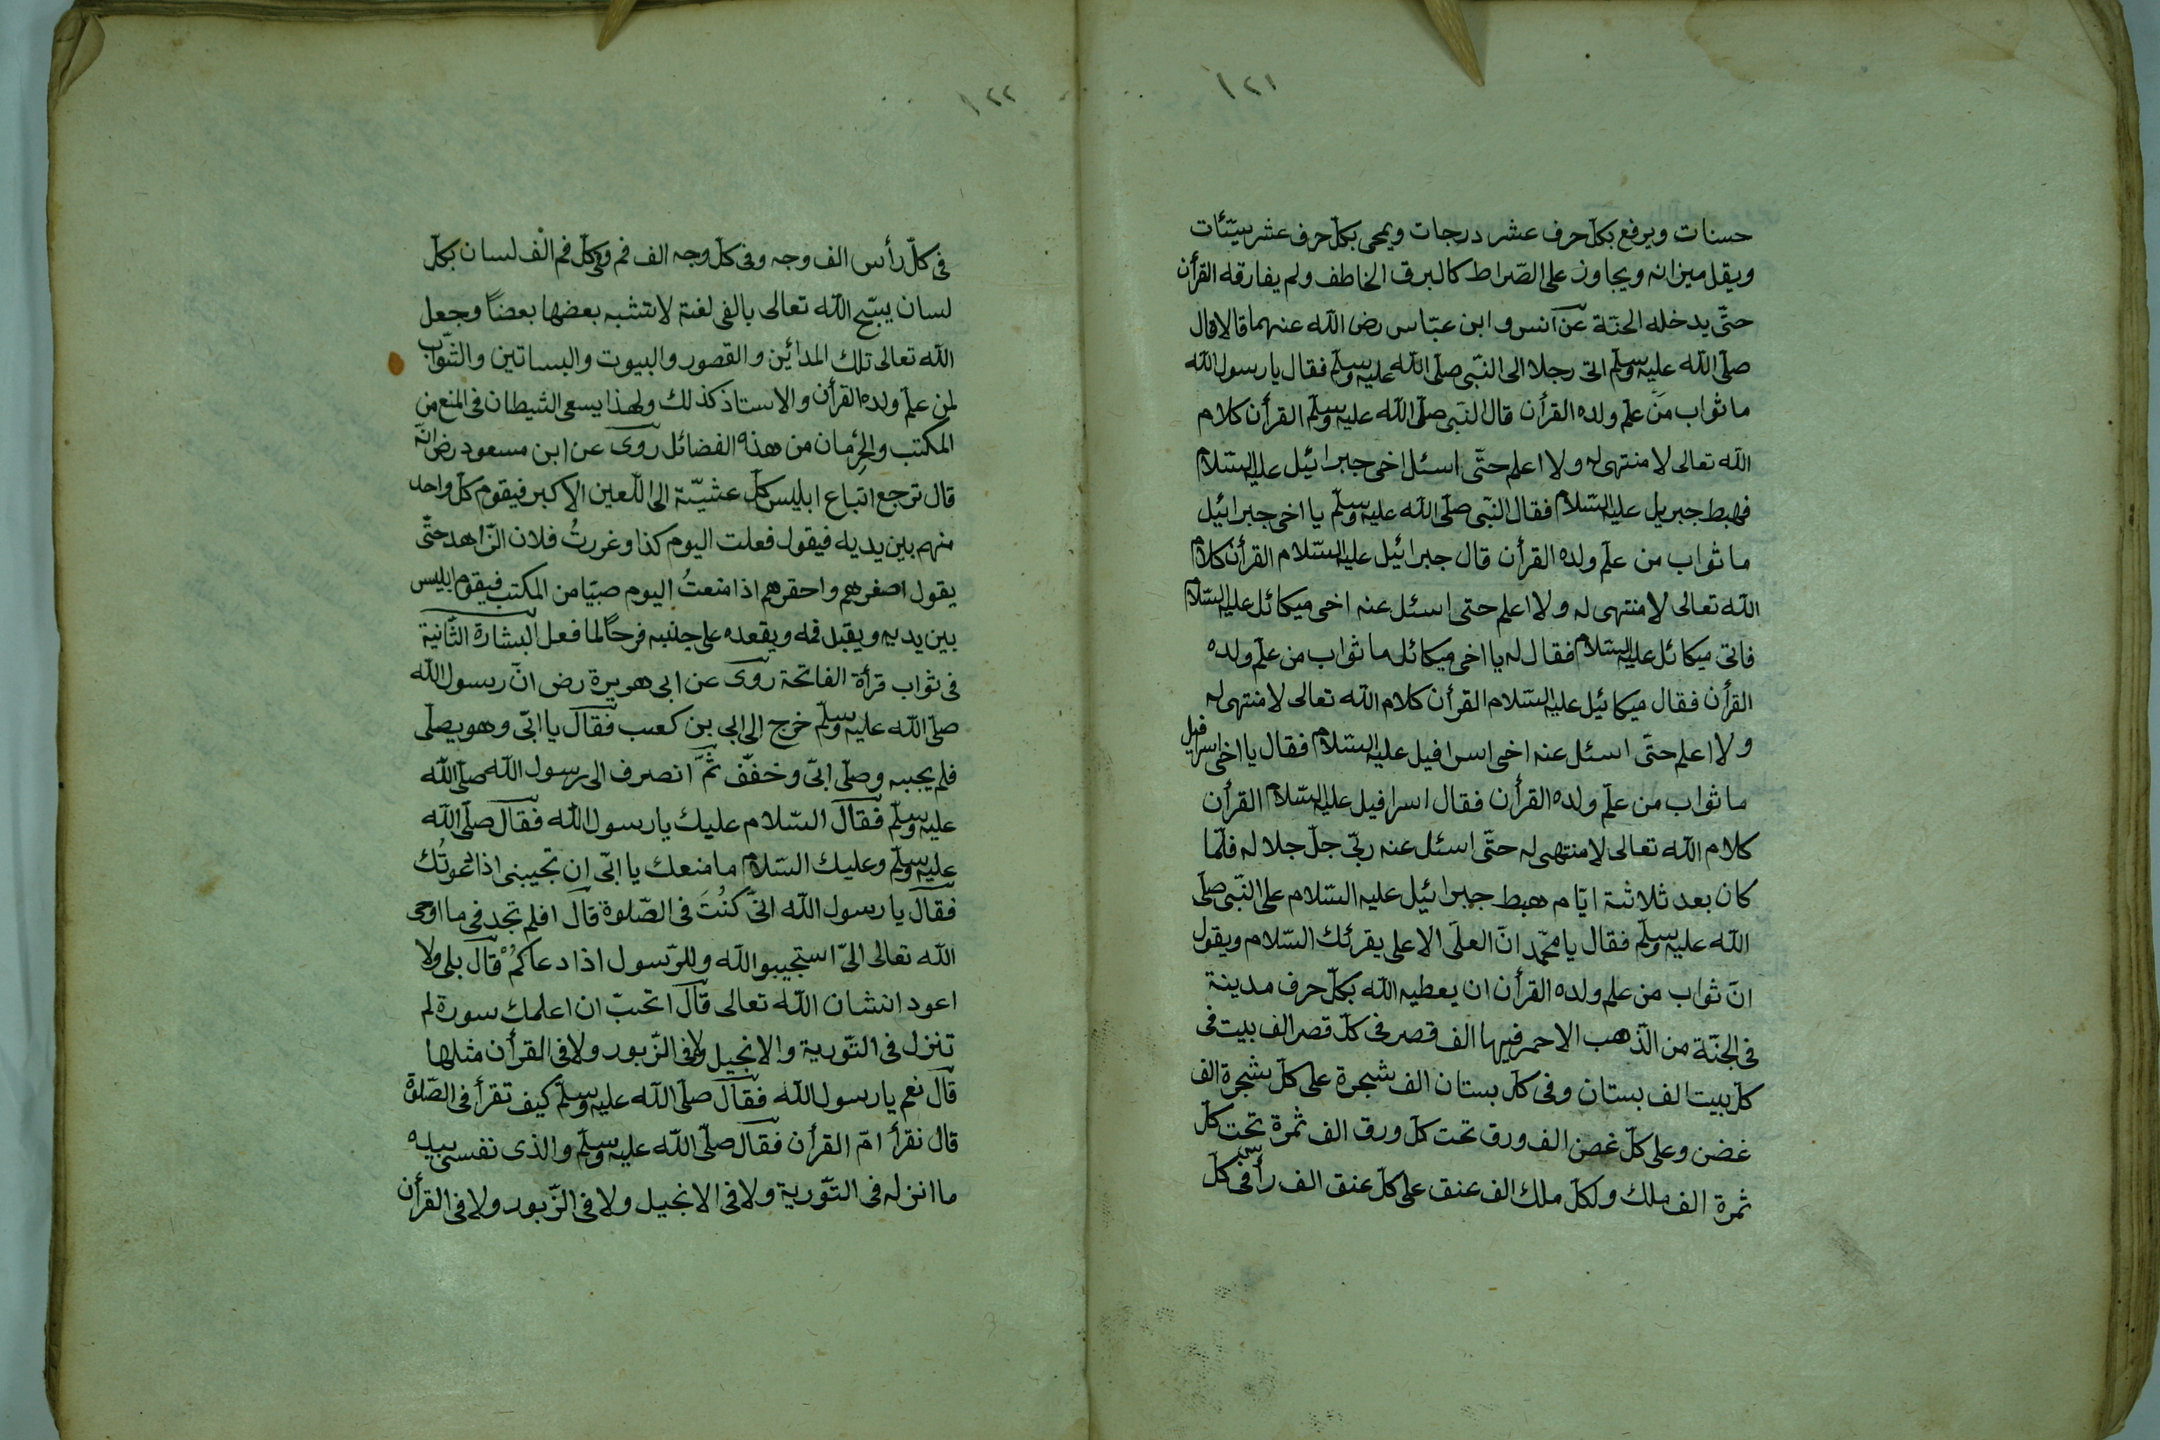 ١٢١
حسنات ويرفع بكلّ حرف عشر درجات ويمحى بكلّ حرف عشر سيّئات
ويقل ميزانه ويجاوز على الصّراط كالبرق الخاطف ولم يفارقه القرأن
حتّى يدخله الجنّة عن انس و ابن عبّاس رضى الله عنهما قالا قال
صلّى الله عليه وسلّم اتى رجلا الى النّبى صلّى الله عليه وسلّم فقال يا رسول الله
ما ثواب مَنْ علّم ولده القرأن قال النّبى صلّى الله عليه وسلّم القرأن كلام
الله تعالى لا منتهى له ولا اعلم حتّى اسئل اخى جبرائيل عليه السّلام
فهبط جبريل عليه السّلام فقال النّبى صلّى الله عليه وسلّم يا اخى جبرائيل
ما ثواب من علّم ولده القرأن قال جبرائيل عليه السّلام القرأن كلام
الله تعالى لا منتهى له ولا اعلم حتى اسئل عنه اخى ميكائل عليه السّلام
فاتى ميكائل عليه السّلام فقال له يا اخى ميكائل ما ثواب من علّم ولده
القرأن فقال ميكائيل عليه السّلام القرأن كلام الله تعالى لا منتهى له
ولا اعلم حتّى اسئل عنه اخى اسرافيل عليه السّلام فقال يا اخى اسرافيل
ما ثواب من علّم ولده القرأن فقال اسرافيل عليه السّلام القرأن
كلام الله تعالى لا منتهى له حتّى اسئل عنه ربّى جلّ جلاله فلمّا
كان بعد ثلاثة ايّام هبط جبرائيل عليه السّلام على النّبى صلّى
الله عليه وسلّم فقال يا محمّد انّ العلّى الاعلى يقرئك السّلام ويقول
انّ ثواب من علم ولده القرأن ان يعطيه الله بكلّ حرف مدينة
فى الجنّة من الذّهب الاحمر فيها الف قصر فى كلّ قصر الف بيت فى
كلّ بيت الف بستان وفى كلّ بستان الف شجرة على كلّ شجرة الف
غضن وعلى كلّ غصن الف ورق تحت كلّ ورق الف ثمرة تحت كلّ
ثمرة الف ملك ولكلّ ملك الف عنق على كلّ عنق الف رأس فى كلّ
١٢٢
فى كلّ رأس الف وجه وفى كلّ وجه الف فم وفى كلّ فم الْف لسان بكلّ
لسان يسبّح الله تعالى بالفى لغة لا تتشبه بعضها بعضًا وجعل
الله تعالى تلك المدائن والقصور والبيوت والبساتين والثّواب
لمن علّم ولده القرأن والاستاذ كذلك ولهذا يسعى الشيطان فى المنع من
المكتب والحِرْمان من هذه الفضائل روى عن ابن مسعود رض انّه
قال ترجع اتباع ابليس كلّ عشيّة الى اللّعين الاكبر فيقوم كلّ واحد
منهم بين يديه فيقول فعلت اليوم كذا وغررتُ فلان الزّاهد حتّى
يقول اصغرهم واحقرهم اذا منعتُ اليوم صبيّا من المكتب فيقوم ابليس
بين يديه ويقبل فمه ويقعده على جنبه فرحًا لما فعل البشارة الثّانية
فى ثواب قرأة الفاتحة روى عن ابى هويرة رض انّ رسول الله
صلّى الله عليه وسلّم خرج الى ابى بن كعب فقال يا ابّى وهو يصلّى
فلم يجبه وصلّى ابىّ وخفّف ثمّ انصرف الى رسول الله صلّى الله
عليه وسلّم فقال السّلام عليك يا رسول الله فقال صلّى الله
عليه وسلّم وعليك السّلام ما منعك يا ابّى ان تجيبنى اذا دعوتُك
فقال يا رسول الله انّى كنُتَ فى الصّلوة قال افلم تجد فى ما اوحى
الله تعالى الىّ استجيبوالله وللرّسول اذا دعاكُمْ قال بلى ولا
اعود انشان الله تعالى قال اتحبّ ان اعلمك سورة لم
تنزل فى التّورية والانجيل ولا فى الزّبور ولا فى القرأن مثلها
قال نعم يا رسول الله فقال صلّى الله عليه وسلّم كيف تقرأ فى الصّلوة
قال نقرأ امّ القرأن فقال صلّى الله عليه وسلّم والذى نفسى بيده
ما انزله فى التّورية ولا فى الانجيل ولا فى الزّبور ولا فى القرأن